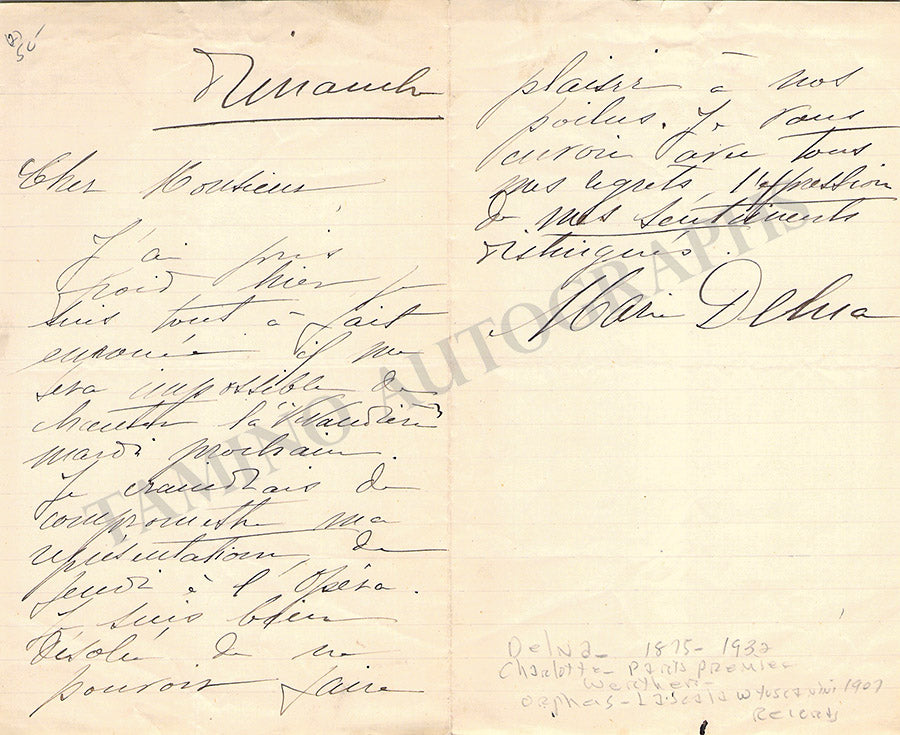 Dimanche
Cher Monsieur
J'ai pris
froid hier, je
suis tout à fait
enrouée il me
sera impossible de
chanter la "Vivandière"
mardi prochain.
Je craindrais de
compromettre ma
représentation de
Jeudi à l'Opéra.
Je suis bien
désolée de ne
pouvoir faire
plaisir à nos
poilus. Je vous
envoie avec tous
mes regrets, l'expression
de mes sentiments
distingués.
Marie Delna
Delna - 1875 - 1932
Charlotte - Paris Premier
Werther -
Orpheus - LaScala w Toscanini 1907
TAMINO AUTOGRAPHS